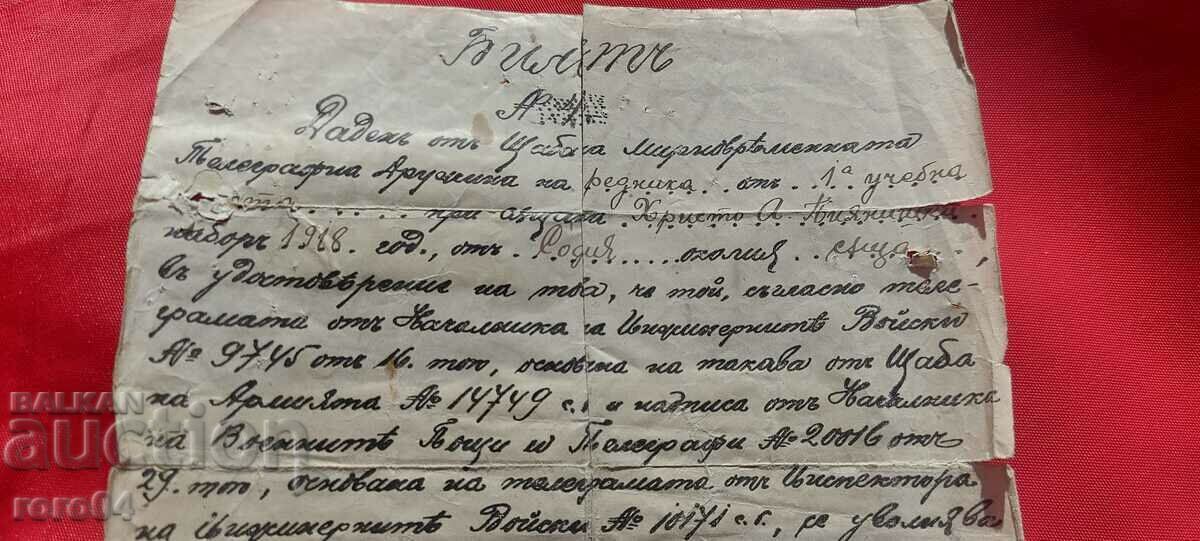 Билетъ
№
Даденъ отъ Щаба на мирновръменната
Телеграфна Дружина на редника.. отъ. 1ª учебна
рота....... при същата Христо А.
наборъ 1918. год., отъ. София..... околия.. съща...,
въ удостовѣрение на това, че той, съгласно теле-
грамата отъ Началника на Инжинернитѣ Войски
№ 9745 отъ 16. того, основана на такава отъ Щаба
на Армията № 14749 с.г. и надписа отъ Началника
на Военнитѣ Пощи и Телеграфи № 20016 отъ
29. того, основана на телеграмата отъ Инспектора
на Инжинернитѣ Войски № 10171 с.г., се уволнява
BALKAN
auction
roro04